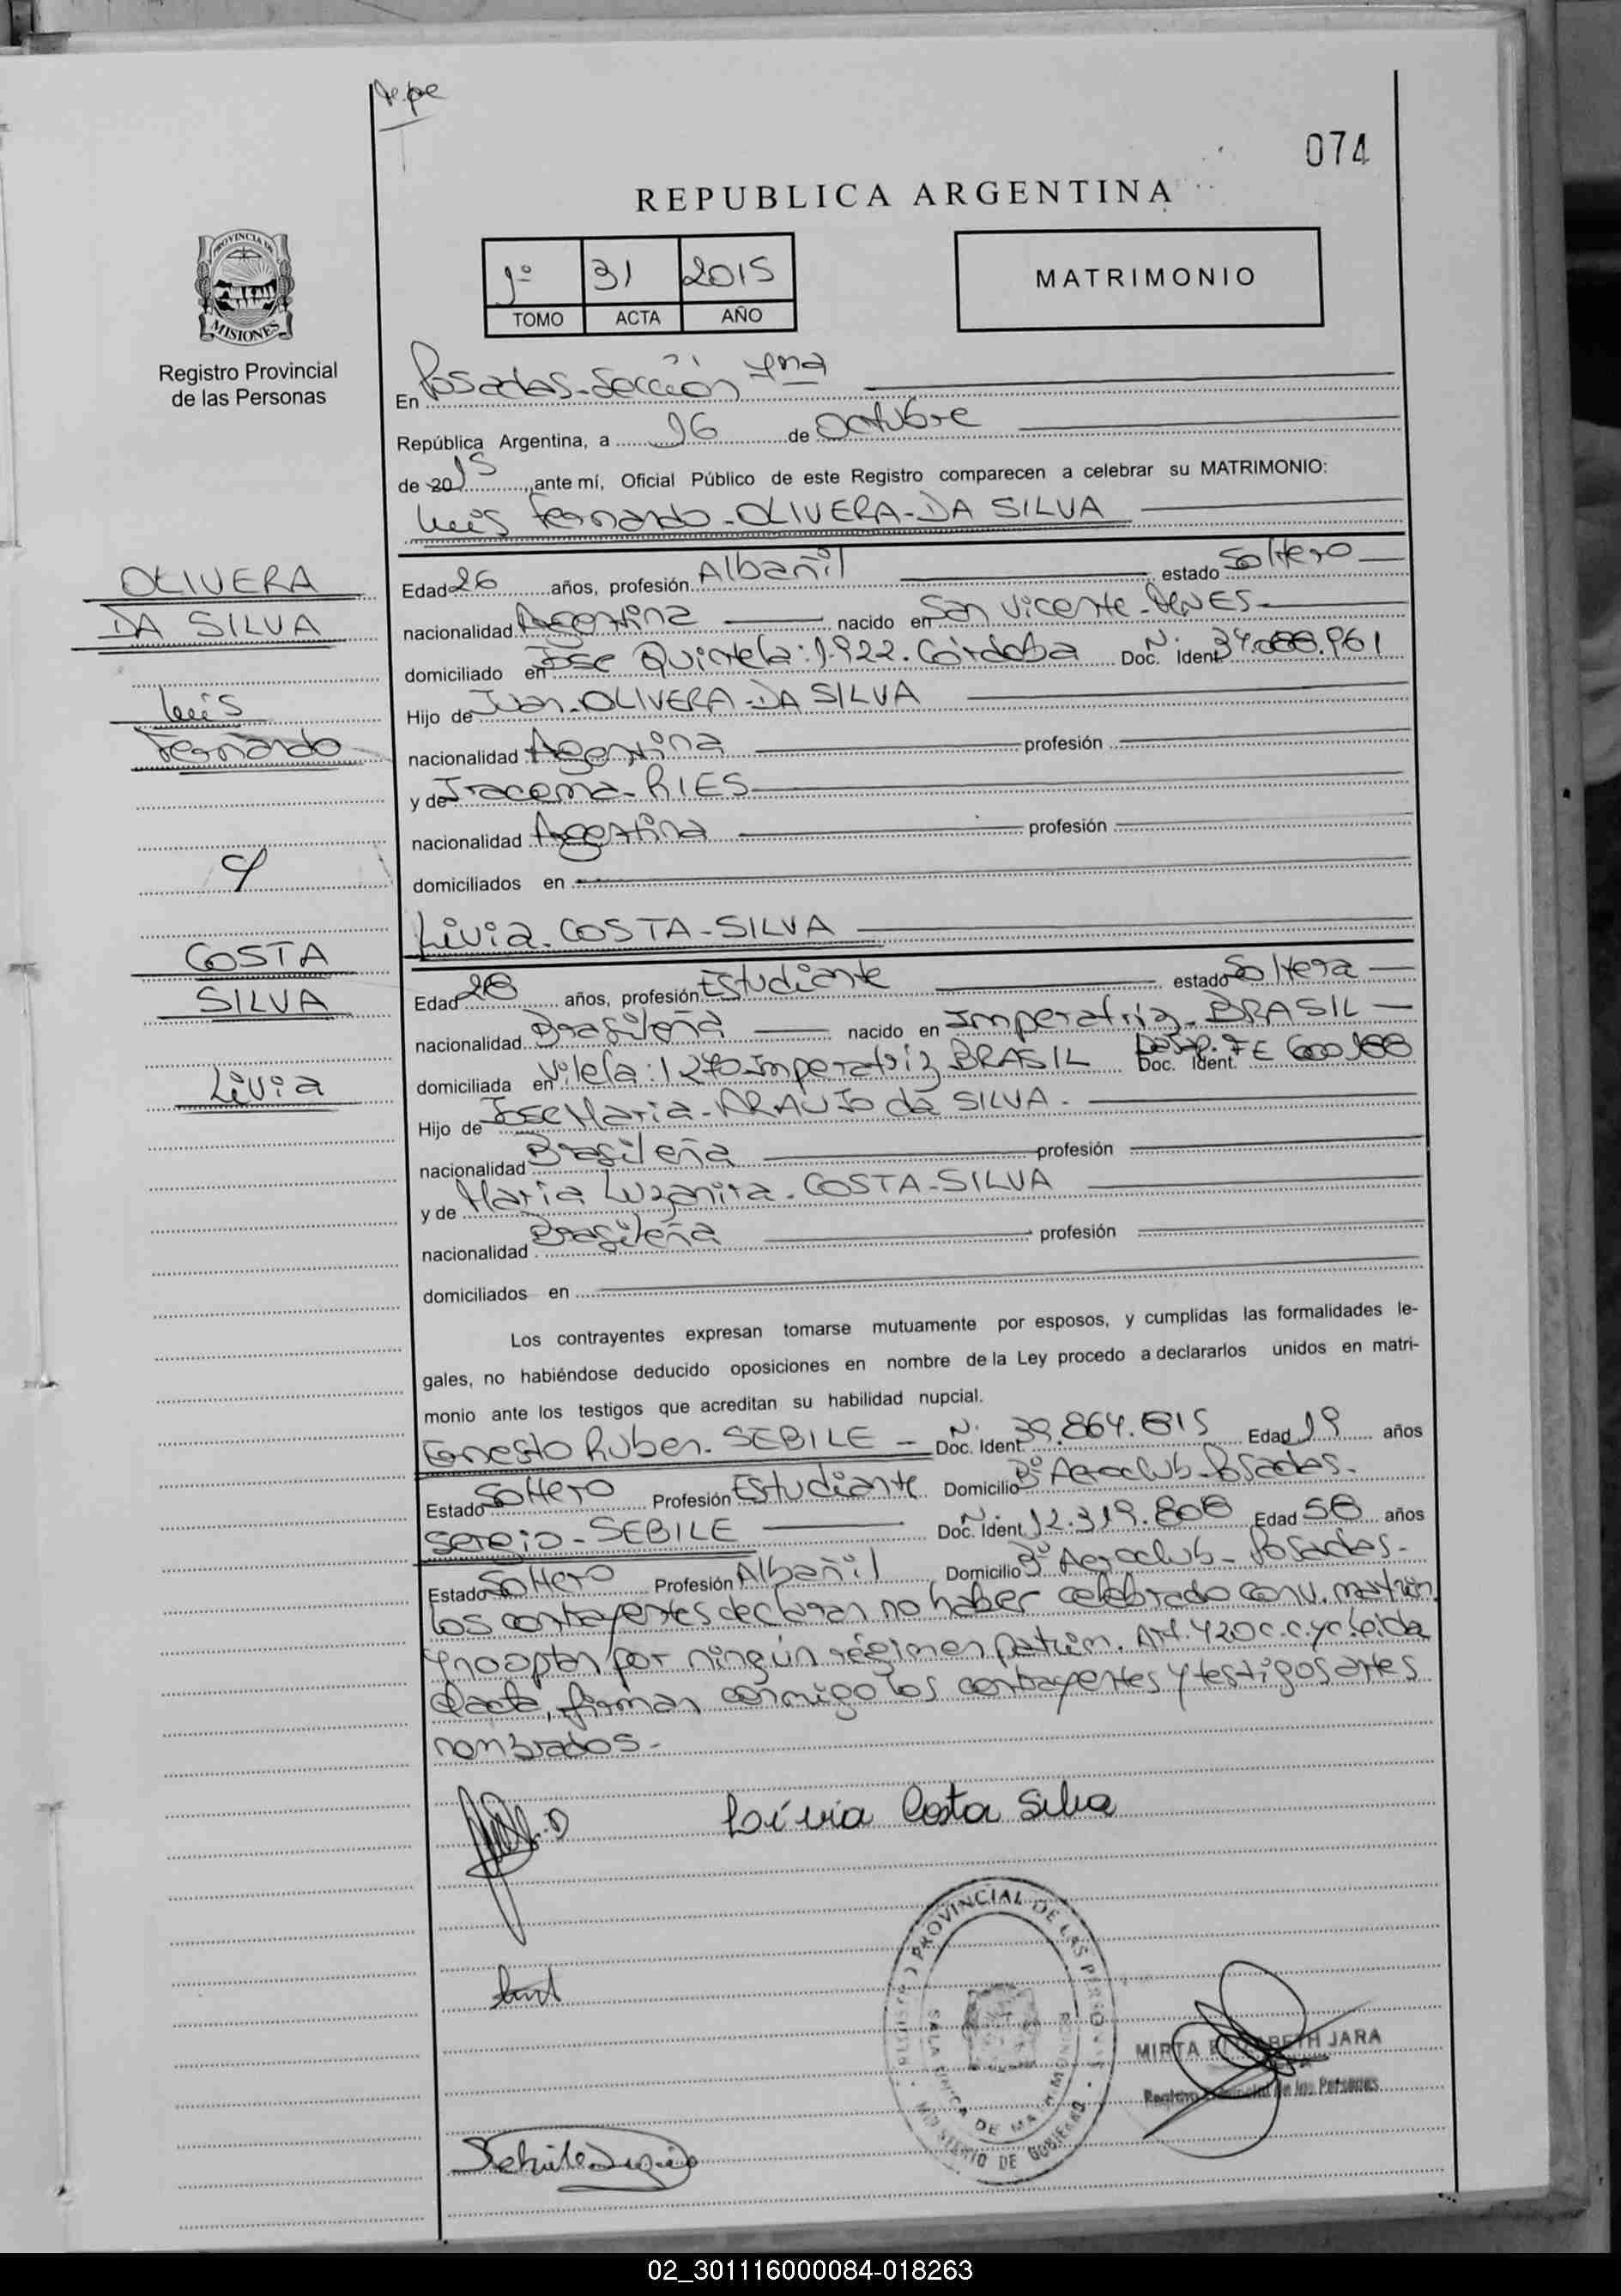 074
REPUBLICA ARGENTINA
1º 31 2015
TOMO ACTA AÑO
MATRIMONIO
PROVINCIA DE
MISIONES
Registro Provincial
de las Personas
En Posadas-Sección 1ma
República Argentina, a 16 de Octubre
de 2015, ante mí, Oficial Público de este Registro comparecen a celebrar su MATRIMONIO:
Luis Fernando-OLIVERA-DA SILVA
OLIVERA
DA SILVA
Luis
Fernando
Edad 26 años, profesión Albañil estado Soltero
nacionalidad Argentina nacido en San Vicente-MNES-
domiciliado en Jose Quintela:1922.Córdoba Doc. Ident Nº 34.088.961
Hijo de Juan-OLIVERA-DA SILVA
nacionalidad Argentina profesión
y de Iracema-RIES
nacionalidad Argentina profesión
domiciliados en
y
COSTA
SILVA
Livia
Livia-COSTA-SILVA
Edad 28 años, profesión Estudiante estado Soltera
nacionalidad Brasileña nacido en Imperatriz-BRASIL
domiciliada en Vilela:1270 Imperatriz BRASIL Doc. Ident.
Hijo de Jose Maria-ARAUJO da SILVA-
nacionalidad Brasileña profesión
y de Maria Luzanira-COSTA-SILVA
nacionalidad Brasileña profesión
domiciliados en
Los contrayentes expresan tomarse mutuamente por esposos, y cumplidas las formalidades le-
gales, no habiéndose deducido oposiciones en nombre de la Ley procedo a declararlos unidos en matri-
monio ante los testigos que acreditan su habilidad nupcial.
Ernesto Ruben-SEBILE - Doc. Ident Nº 39.864.815 Edad 19 años
Estado Soltero Profesión Estudiante Domicilio Bº Aeroclub-Posadas-
Sergio-SEBILE Doc. Ident Nº 12.319.808 Edad 58 años
Estado Soltero Profesión Albañil Domicilio Bº Aeroclub-Posadas-
los contrayentes declaran no haber celebrado conv. matrim.
y no optan por ningún régimen patrim. Art. 420 c.c.yc. leída
el acta, firman conmigo los contrayentes y testigos antes
nombrados-
Livia Costa Silva
PROVINCIAL DE LAS PERSONAS
SALA UNICA DE MATRIMONIOS
MINISTERIO DE GOBIERNO
MIRTA ELIZABETH JARA
Registro Provincial de las Personas
Sebile Sergio
02_301116000084-018263